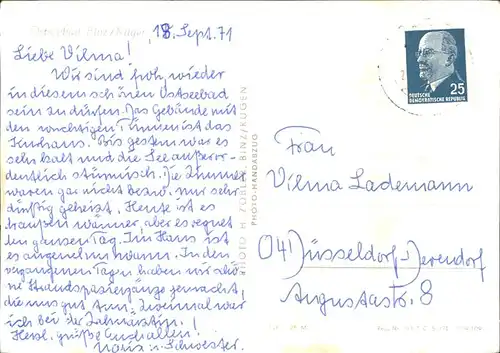 Ostseebad Binz/Rügen
18. Sept. 71
Liebe Vilma!
Wir sind froh, wieder
in diesem schönen Ostseebad
sein zu dürfen. Das Gebäude mit
den wuchtigen Türmen ist das
Kurhaus. Bis gestern war es
sehr kalt und die See außeror-
dentlich stürmisch. Die Zimmer
waren gar nicht bezw. nur sehr
dürftig geheizt. Heute ist es
draußen wärmer, aber es regnet
den ganzen Tag. Im Haus ist
es angenehm warm. In den
vergangenen Tagen haben wir schö-
ne Strandspaziergänge gemacht,
die uns gut tun. Zweimal war
ich bei der Zahnärztin!
Herzl. Grüße Euch allen!
u. Schwester.
PHOTO H. ZOBLER, BINZ/RÜGEN
PHOTO-HANDABZUG
25
DEUTSCHE
DEMOKRATISCHE REPUBLIK
Frau
Vilma Lademann
(041) Düsseldorf-Derendorf
Augustastr. 8